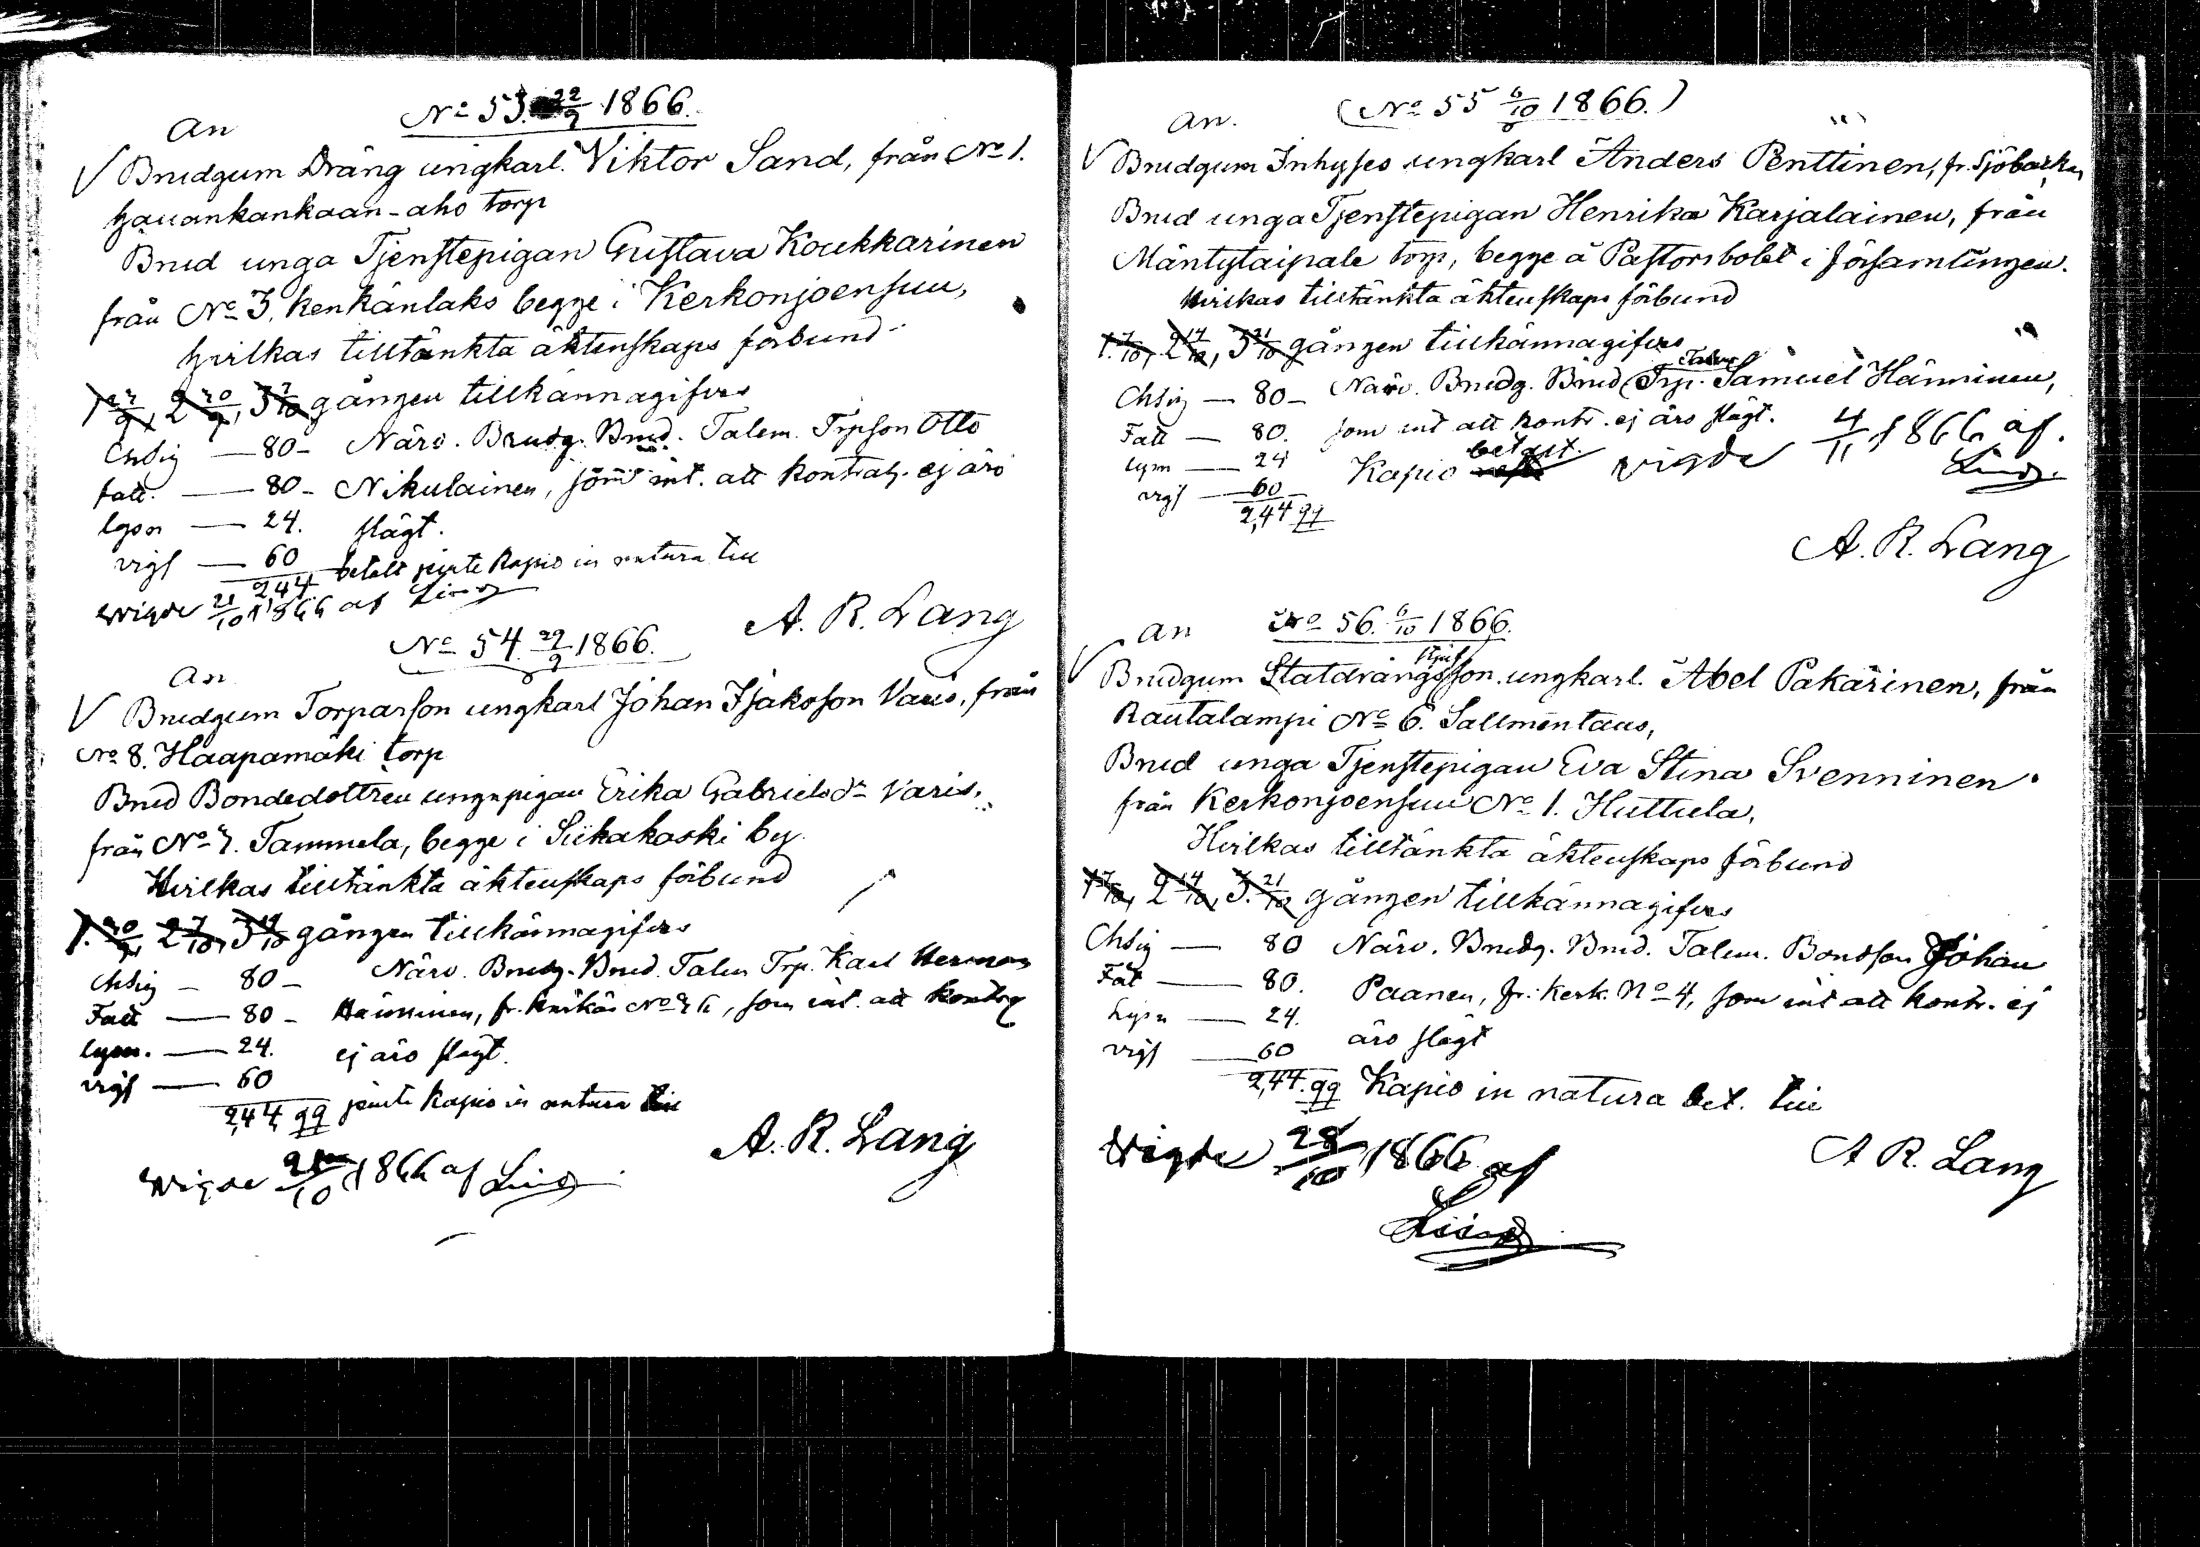 No 53. 22/9 1866.
An
√ Brudgum Dräng ungkarl. Viktor Sand, från No 1.
Hauankankaan-aho torp
Brud unga Tjenstepigan Gustava Koukkarinen
från No 3, Kenkänlaks begge i Kerkonjoensuu,
Hvilkas tilltänkta äktenskaps förbund
1 23/9, 2 30/9, 3 7/10 gången tillkännagifves
Chsig — 80 - Närv. Brudg. Brud. Talem. Trpson Otto
Fatt. — 80 - Nikulainen, som int. att kontrah. ej äro
lysn — 24. slägt.
vigs — 60 betalt pente Kapio in natura till
2,44.
Wigde 21/10 1866 af Lind
A. R. Lang
No 54. 29/9 1866.
An
√ Brudgum Torparson ungkarl Johan Isaksson Varis, från
No 8. Haapamäki torp
Brud Bondedottren unga pigan Erika Gabrielsdr Varis,
från No 7. Tammela, begge i Siikakoski by.
Hvilkas tilltänkta äktenskaps förbund
1. 30/9, 2 7/10, 3 14/10 gången tillkännagifves
Chsig — 80 - Närv. Brudg. Brud. Talem Trp. Karl Herman
Fatt — 80 - Hänninen, fr. No 26, som int. att kontrag
lysn. — 24. ej äro slägt.
vigs — 60
2,44 pente Kapio in natura till
A. R. Lang
Wigde 21/10 1866 af Lind
(No 55 6/10 1866.)
An.
√ Brudgum Inhyses ungkarl Anders Penttinen, fr. Sjöbacka,
Brud unga Tjenstepigan Henrika Karjalainen, från
Mäntytaipale torp, begge å Pastorsbolet i församlingen.
Hvilkas tilltänkta äktenskaps förbund
1. 7/10, 2 14/10, 3 21/10 gången tillkännagifves
Talem
Chsig — 80 - Närv. Brudg. Brud (Trp. Samuel Hänninen,
Fatt — 80. som int att kontr. ej äro slägt.
lysn — 24 Kapio betalt. Wigde 4/11 1866 af
vigs — 60 Lind
2,44
A. R. Lang
An No 56. 6/10 1866.
styf
√ Brudgum Statdrängsson ungkarl. Abel Pakarinen, från
Rautalampi No 6. Sallmentaus,
Brud unga Tjenstepigan Eva Stina Svenninen
från Kerkonjoensuu No 1. Huttula,
Hvilkas tilltänkta äktenskaps förbund
1 7/10, 2 14/10, 3. 21/10 gången tillkännagifves
Chsig — 80 Närv. Brudg. Brud. Talem. Bondson Johan
Fat — 80. Paanen, fr. Kerk. No 4, som int att kontr. ej
Lysn — 24. äro slägt
vigs — 60
2,44. Kapio in natura bet. till
A R. Lang
Wigde 28/10 1866 af
Lind